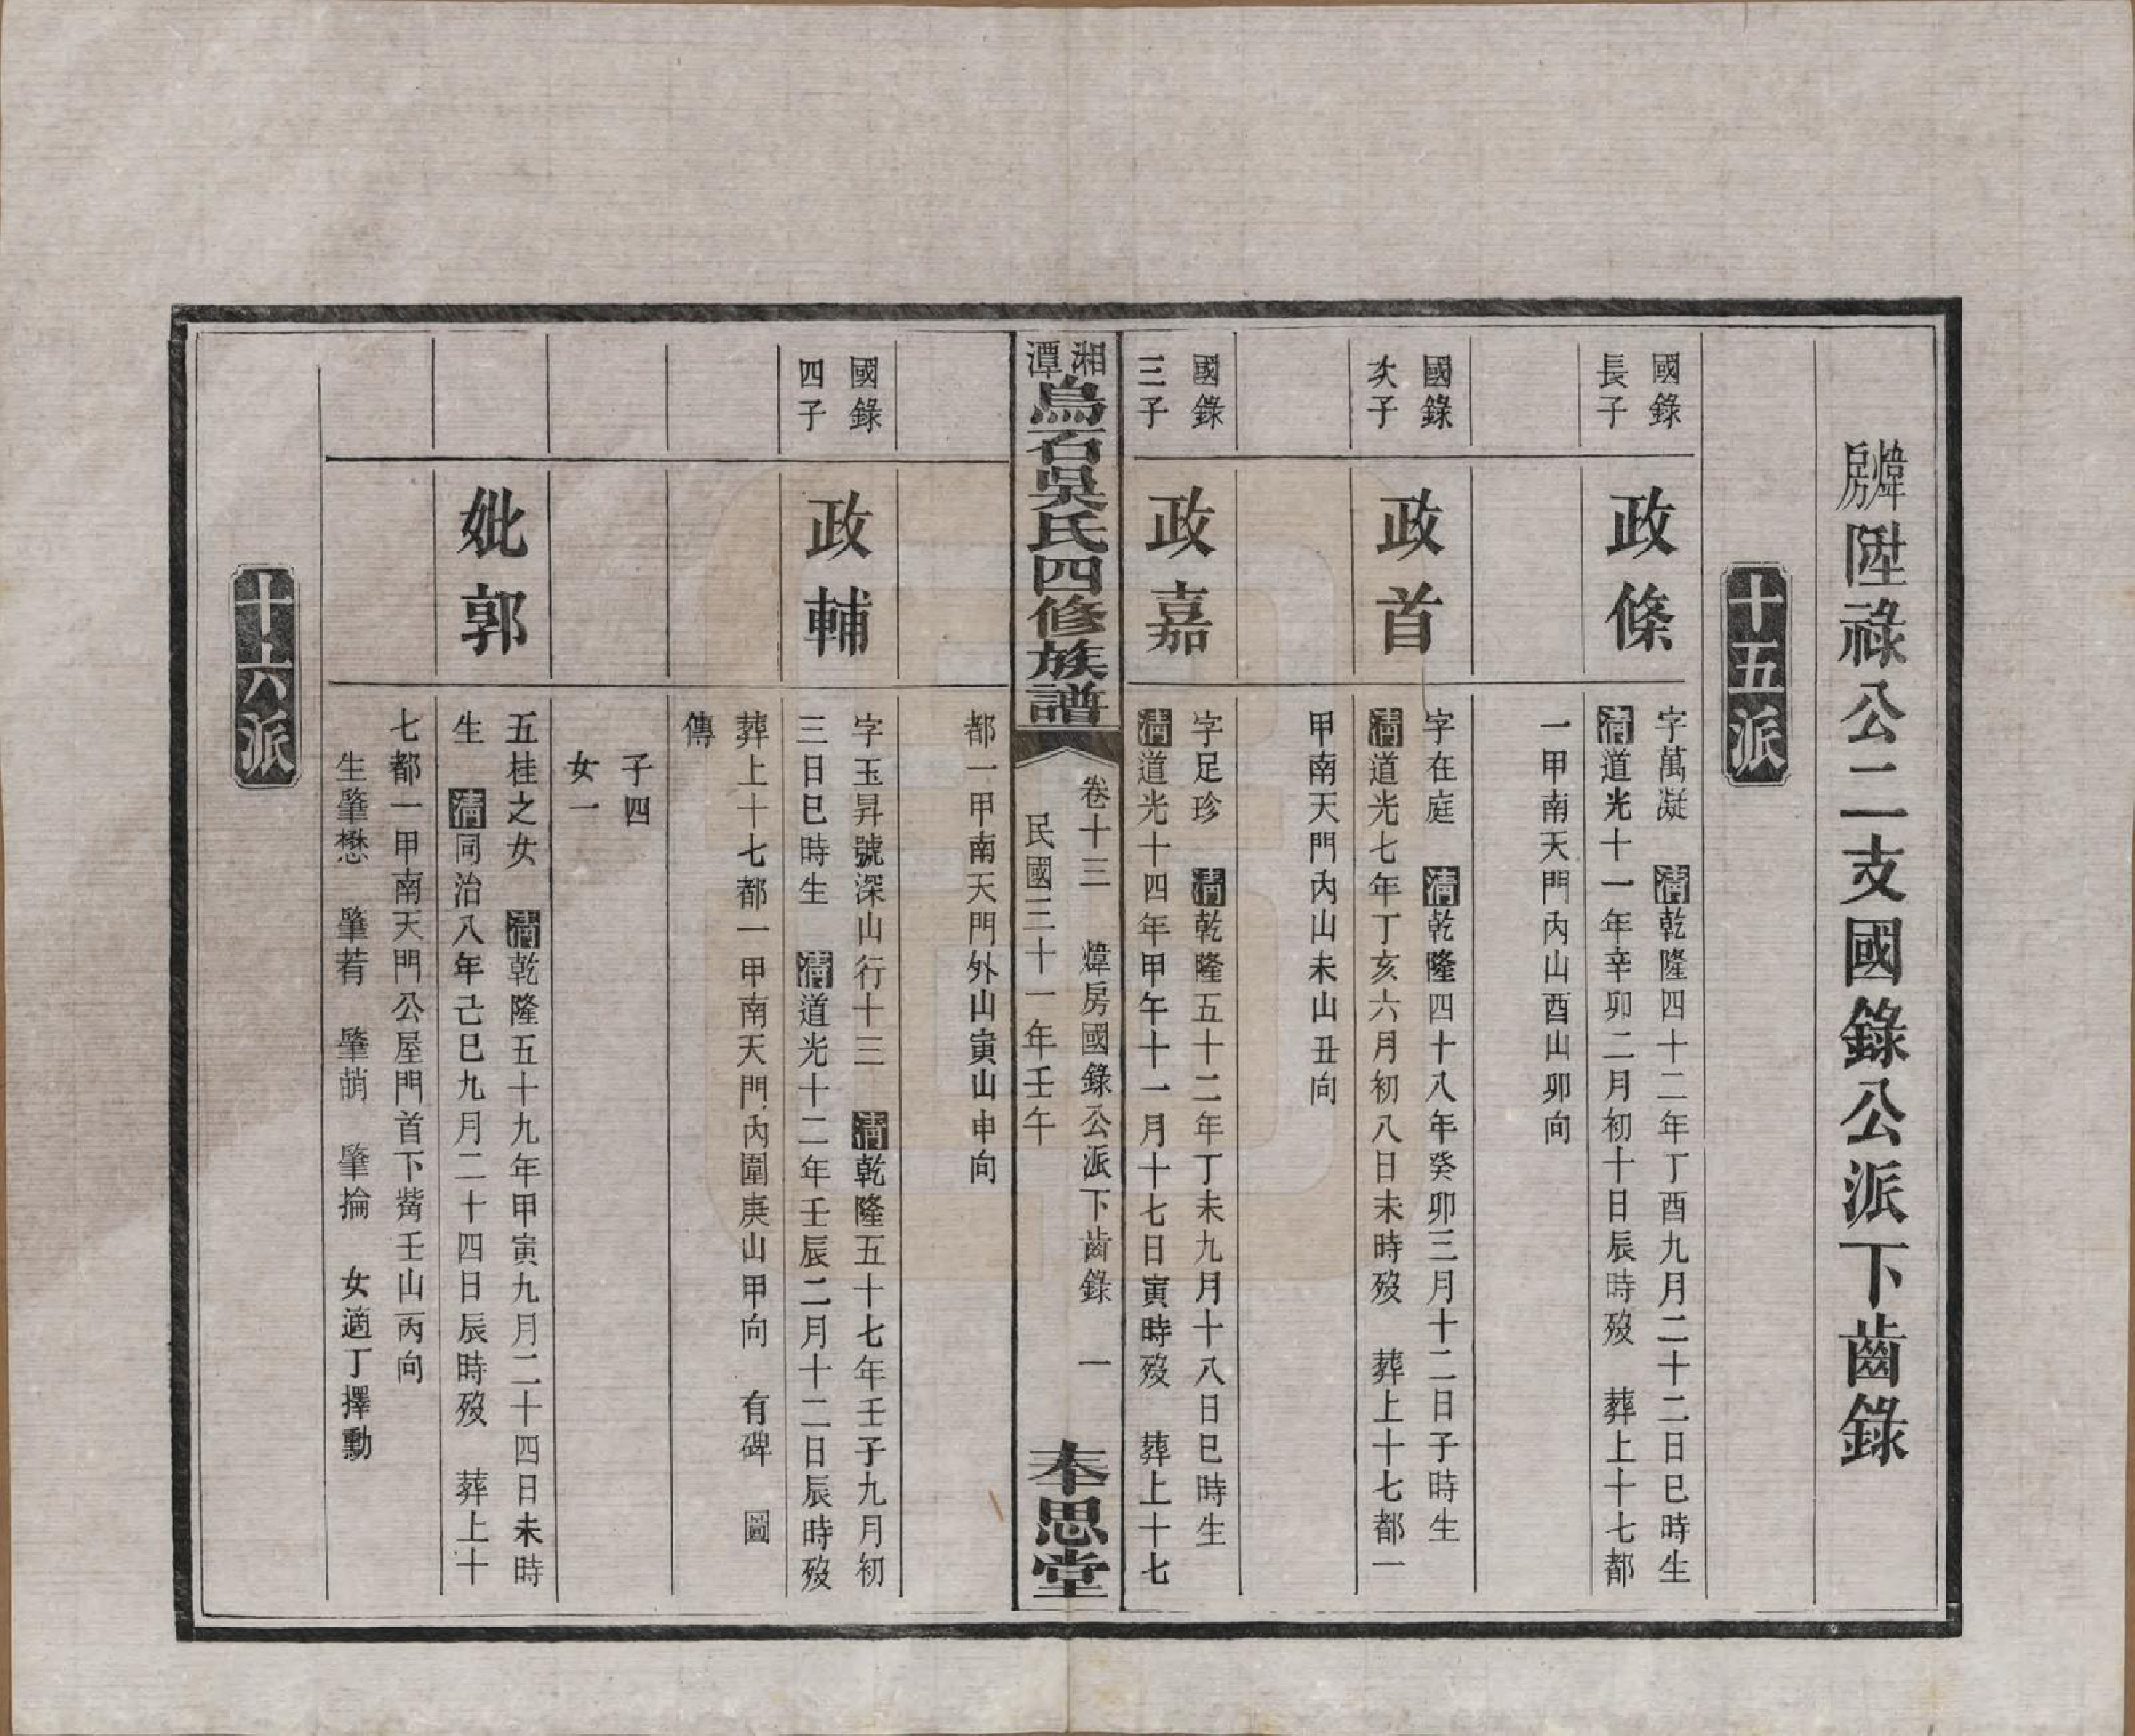 煒房陞祿公二支國錄公派下齒錄
十五派
國錄
長子
政條
字萬凝　清乾隆四十二年丁酉九月二十二日巳時生
清道光十一年辛卯二月初十日辰時歿　葬上十七都
一甲南天門內山酉山卯向
國錄
次子
政首
字在庭　清乾隆四十八年癸卯三月十二日子時生
清道光七年丁亥六月初八日未時歿　葬上十七都一
甲南天門內山未山丑向
國錄
三子
政嘉
字足珍　清乾隆五十二年丁未九月十八日巳時生
清道光十四年甲午十一月十七日寅時歿　葬上十七
湘潭烏石吳氏四修族譜
卷十三　煒房國錄公派下齒錄　一
民國三十一年壬午
奉思堂
都一甲南天門外山寅山申向
國錄
四子
政輔
字玉昇號深山行十三　清乾隆五十七年壬子九月初
三日巳時生　清道光十二年壬辰二月十二日辰時歿
葬上十七都一甲南天門內圍庚山甲向　有碑　圖
傳
子四
女一
妣郭
五桂之女　清乾隆五十九年甲寅九月二十四日未時
生　清同治八年己巳九月二十四日辰時歿　葬上十
七都一甲南天門公屋門首下觜壬山丙向
生肇懋　肇若　肇萌　肇掄　女適丁擇勳
十六派